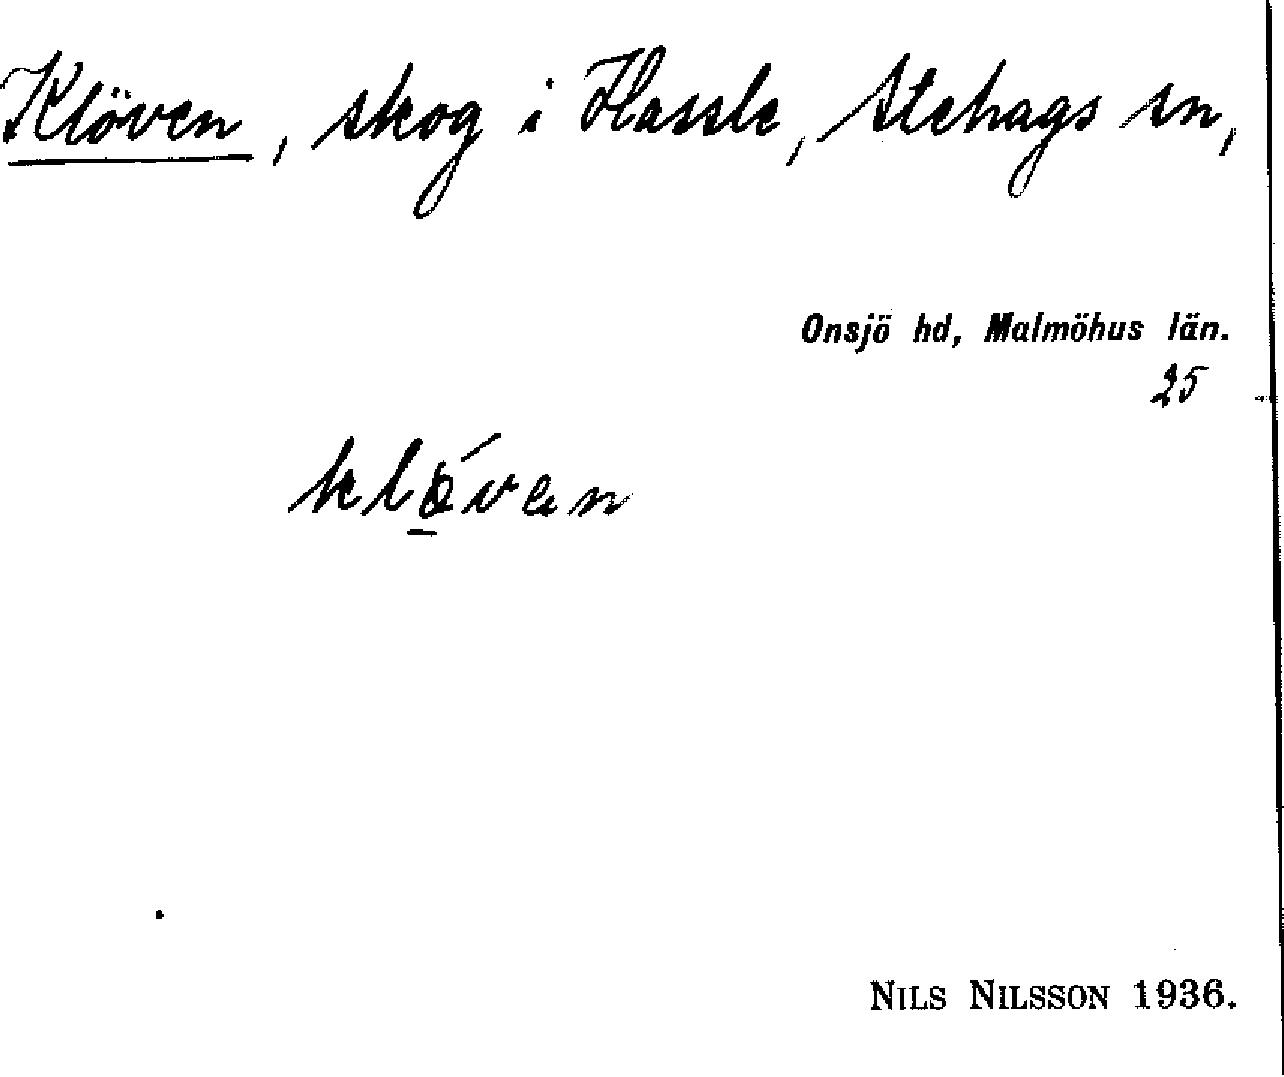 Klöven, skog i Hassle, Stehags sn,
Onsjö hd, Malmöhus län.
25
klöven
NILS NILSSON 1936.